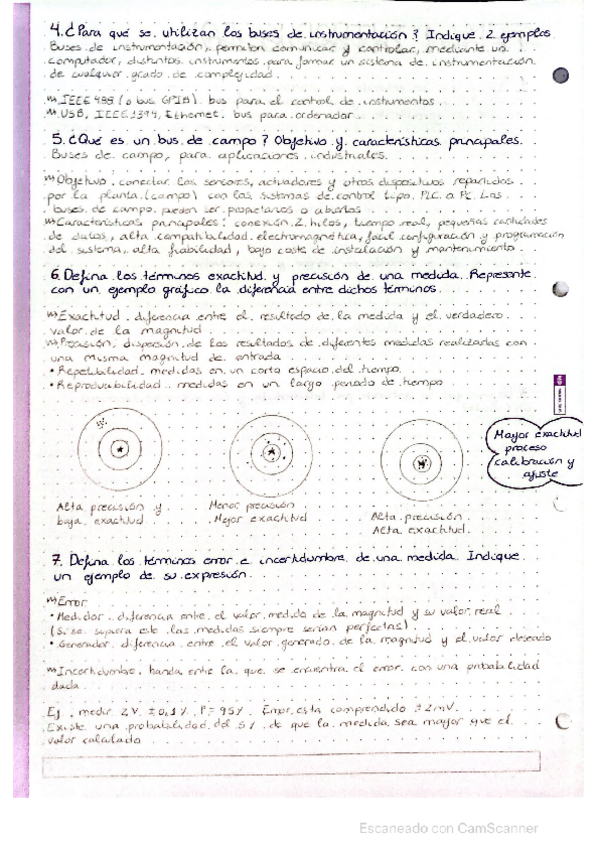 4. ¿Para qué se utilizan los buses de instrumentación? Indique 2 ejemplos
Buses de instrumentación, permiten comunicar y controlar, mediante un
computador, distintos instrumentos para formar un sistema de instrumentación
de cualquier grado de complejidad.
IEEE 488 (o bus GPIB). bus para el control de instrumentos
USB, IEEE 1394, Ethernet. bus para ordenador
5. ¿Qué es un bus de campo? Objetivo y características principales.
Buses de campo, para aplicaciones industriales.
Objetivo. conectar los sensores, actuadores y otros dispositivos repartidos
por la planta (campo) con los sistemas de control tipo PLC o PC. Los
buses de campo pueden ser propietarios o abiertos
Características principales: conexión 2 hilos, tiempo real, pequeñas cantidades
de datos, alta compatibilidad electromagnética, fácil configuración y programación
del sistema, alta fiabilidad, bajo coste de instalación y mantenimiento
6. Defina los términos exactitud y precisión de una medida. Represente
con un ejemplo gráfico la diferencia entre dichos términos.
Exactitud. diferencia entre el resultado de la medida y el verdadero
valor de la magnitud
Precisión, dispersión de los resultados de diferentes medidas realizadas con
una misma magnitud de entrada
• Repetibilidad. medidas en un corto espacio del tiempo
• Reproducibilidad. medidas en un largo periodo de tiempo
Mayor exactitud
proceso
calibración y
ajuste
Alta precisión y
baja exactitud
Menor precisión
Mejor exactitud
Alta precisión
Alta exactitud
7. Defina los términos error e incertidumbre de una medida. Indique
un ejemplo de su expresión
Error
• Medidor. diferencia entre el valor medido de la magnitud y su valor real
(Si se supiera este las medidas siempre serían perfectas)
• Generador. diferencia entre el valor generado de la magnitud y el valor deseado
Incertidumbre. banda entre la que se encuentra el error con una probabilidad
dada
Ej. medir 2V ± 0,1% P = 95%. Error esta comprendido ± 2mV.
Existe una probabilidad del 5% de que la medida sea mayor que el
valor calculado
Escaneado con CamScanner